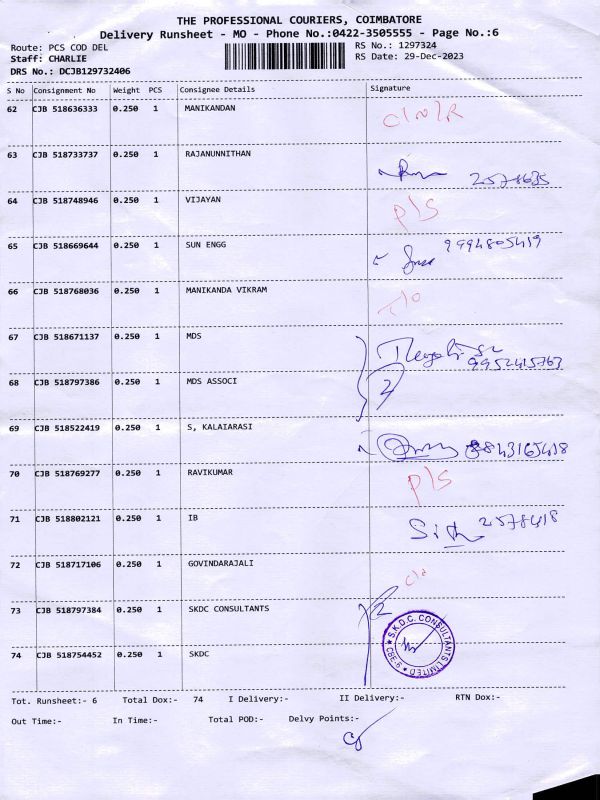 THE PROFESSIONAL COURIERS, COIMBATORE
Delivery Runsheet - MO - Phone No.:0422-3505555 - Page No.:6
Route: PCS COD DEL RS No.: 1297324
Staff: CHARLIE RS Date: 29-Dec-2023
DRS No.: DCJB129732406
S No Consignment No Weight PCS Consignee Details Signature
62 CJB 518636333 0.250 1 MANIKANDAN C/N/R
63 CJB 518733737 0.250 1 RAJANUNNITHAN 2578635
64 CJB 518748946 0.250 1 VIJAYAN P/S
65 CJB 518669644 0.250 1 SUN ENGG 9994805419
66 CJB 518768036 0.250 1 MANIKANDA VIKRAM
67 CJB 518671137 0.250 1 MDS 9952415763
68 CJB 518797386 0.250 1 MDS ASSOCI 2
69 CJB 518522419 0.250 1 S, KALAIARASI 9843165418
70 CJB 518769277 0.250 1 RAVIKUMAR P/S
71 CJB 518802121 0.250 1 IB 2578418
72 CJB 518717106 0.250 1 GOVINDARAJALI
73 CJB 518797384 0.250 1 SKDC CONSULTANTS 2
S.K.D.C. CONSULTANTS LIMITED CBE-6
74 CJB 518754452 0.250 1 SKDC
Tot. Runsheet:- 6 Total Dox:- 74 I Delivery:- II Delivery:- RTN Dox:-
Out Time:- In Time:- Total POD:- Delvy Points:-